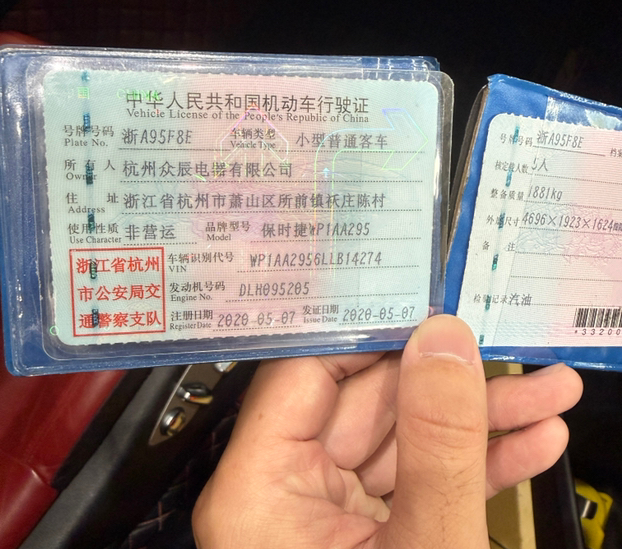 中华人民共和国机动车行驶证
Vehicle License of the People's Republic of China
号牌号码 浙A95F8E 车辆类型 小型普通客车
Plate No. Vehicle Type
所有人 杭州众辰电器有限公司
Owner
住址 浙江省杭州市萧山区所前镇袄庄陈村
Address
使用性质 非营运 品牌型号 保时捷WP1AA295
Use Character Model
浙江省杭州
市公安局交
通警察支队
车辆识别代号 WP1AA2956LLB14274
VIN
发动机号码 DLH095205
Engine No.
注册日期 2020-05-07 发证日期 2020-05-07
Register Date Issue Date
号牌号码 浙A95F8E 档案
核定载人数 5人
整备质量 1881kg
外廓尺寸 4696×1923×1624
备注
检验记录 汽油
*33200